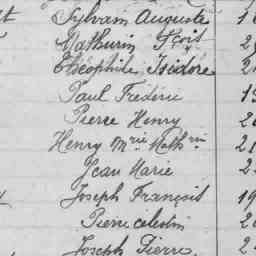 Sylvain Auguste
Mathurin Fçois
Théophile Isidore
Paul Frédéric
Pierre Henry
Henry Mrie Math in
Jean Marie
Joseph François
Pierre Célestin
Joseph Pierre